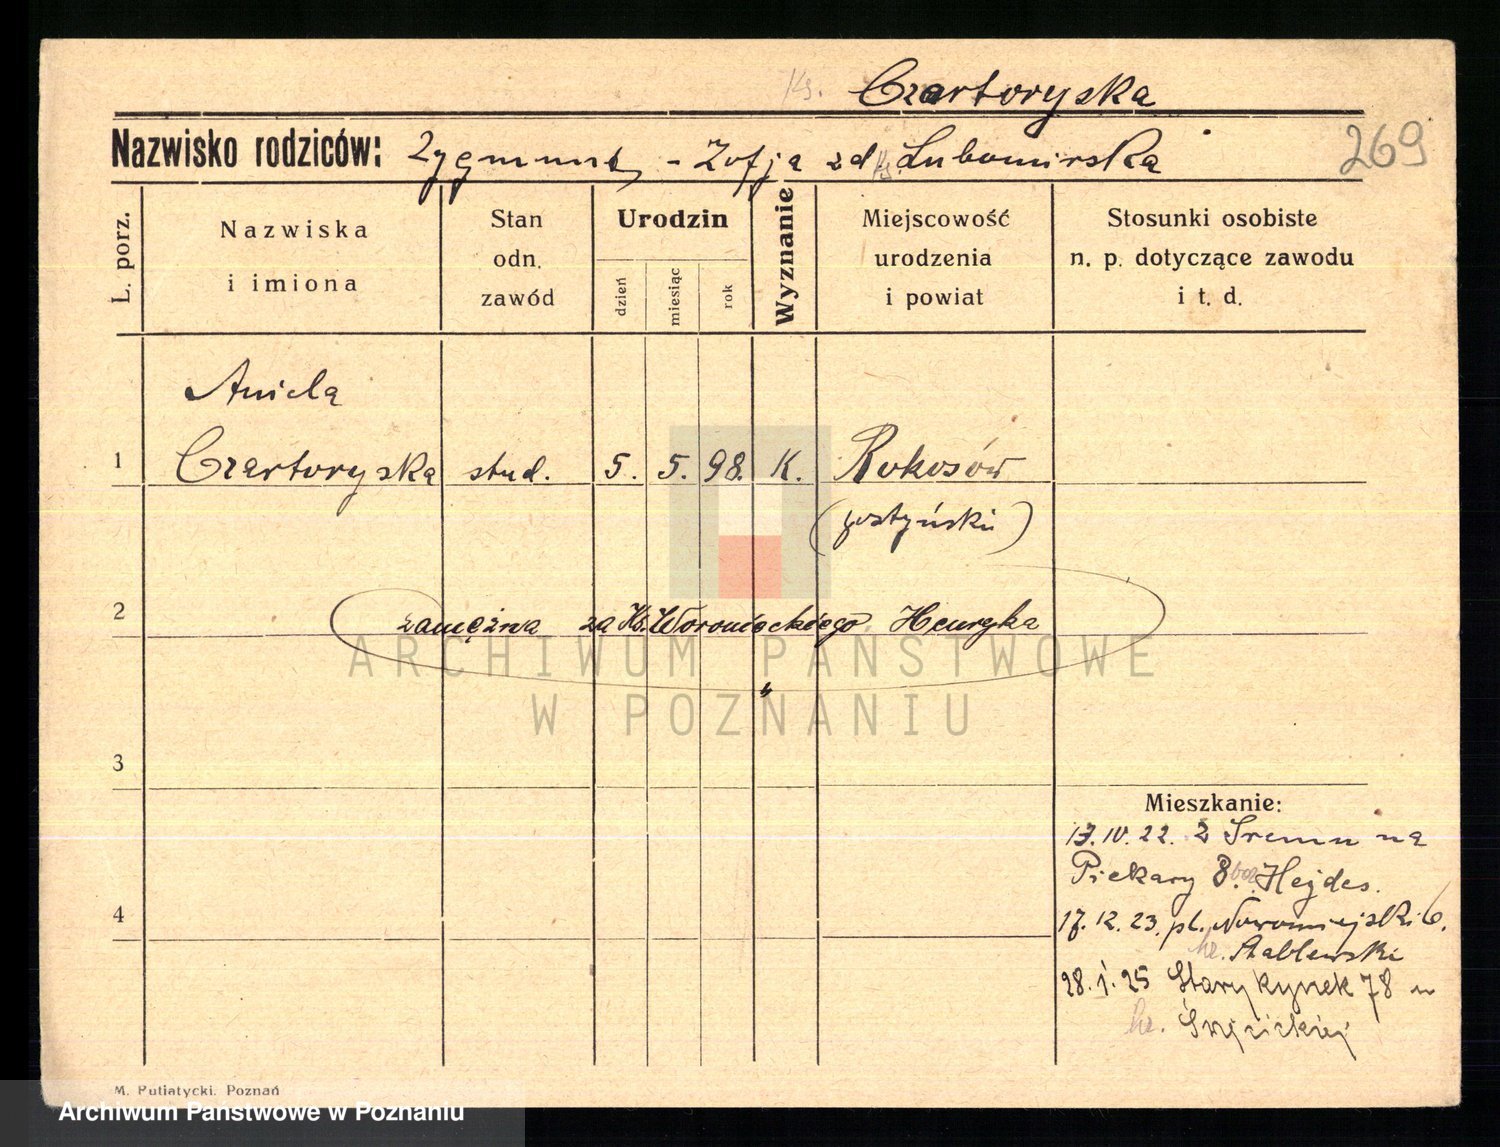 Ks. Czartoryska
Nazwisko rodziców: Zygmunt, - Zofja zd Ks. Lubomirska
269
L. porz.
Nazwiska
i imiona
Stan
odn.
zawód
Urodzin
dzień
miesiąc
rok
Wyznanie
Miejscowość
urodzenia
i powiat
Stosunki osobiste
n. p. dotyczące zawodu
i t. d.
Aniela
1 Czartoryska stud. 5. 5. 98. K. Rokosów
(gostyński)
2 zamężna za Ks. Woronieckiego Henryka
ARCHIWUM PAŃSTWOWE
W POZNANIU
3
Mieszkanie:
13. IV. 22. Z Śremu na
Piekary 8. Hejdes.
4
17. 12. 23. pl. Nowomiejski 6.
hr. Żabłewski
28. 1. 25 Stary Rynek 78 u
hr.
M. Putiatycki. Poznań
Archiwum Państwowe w Poznaniu